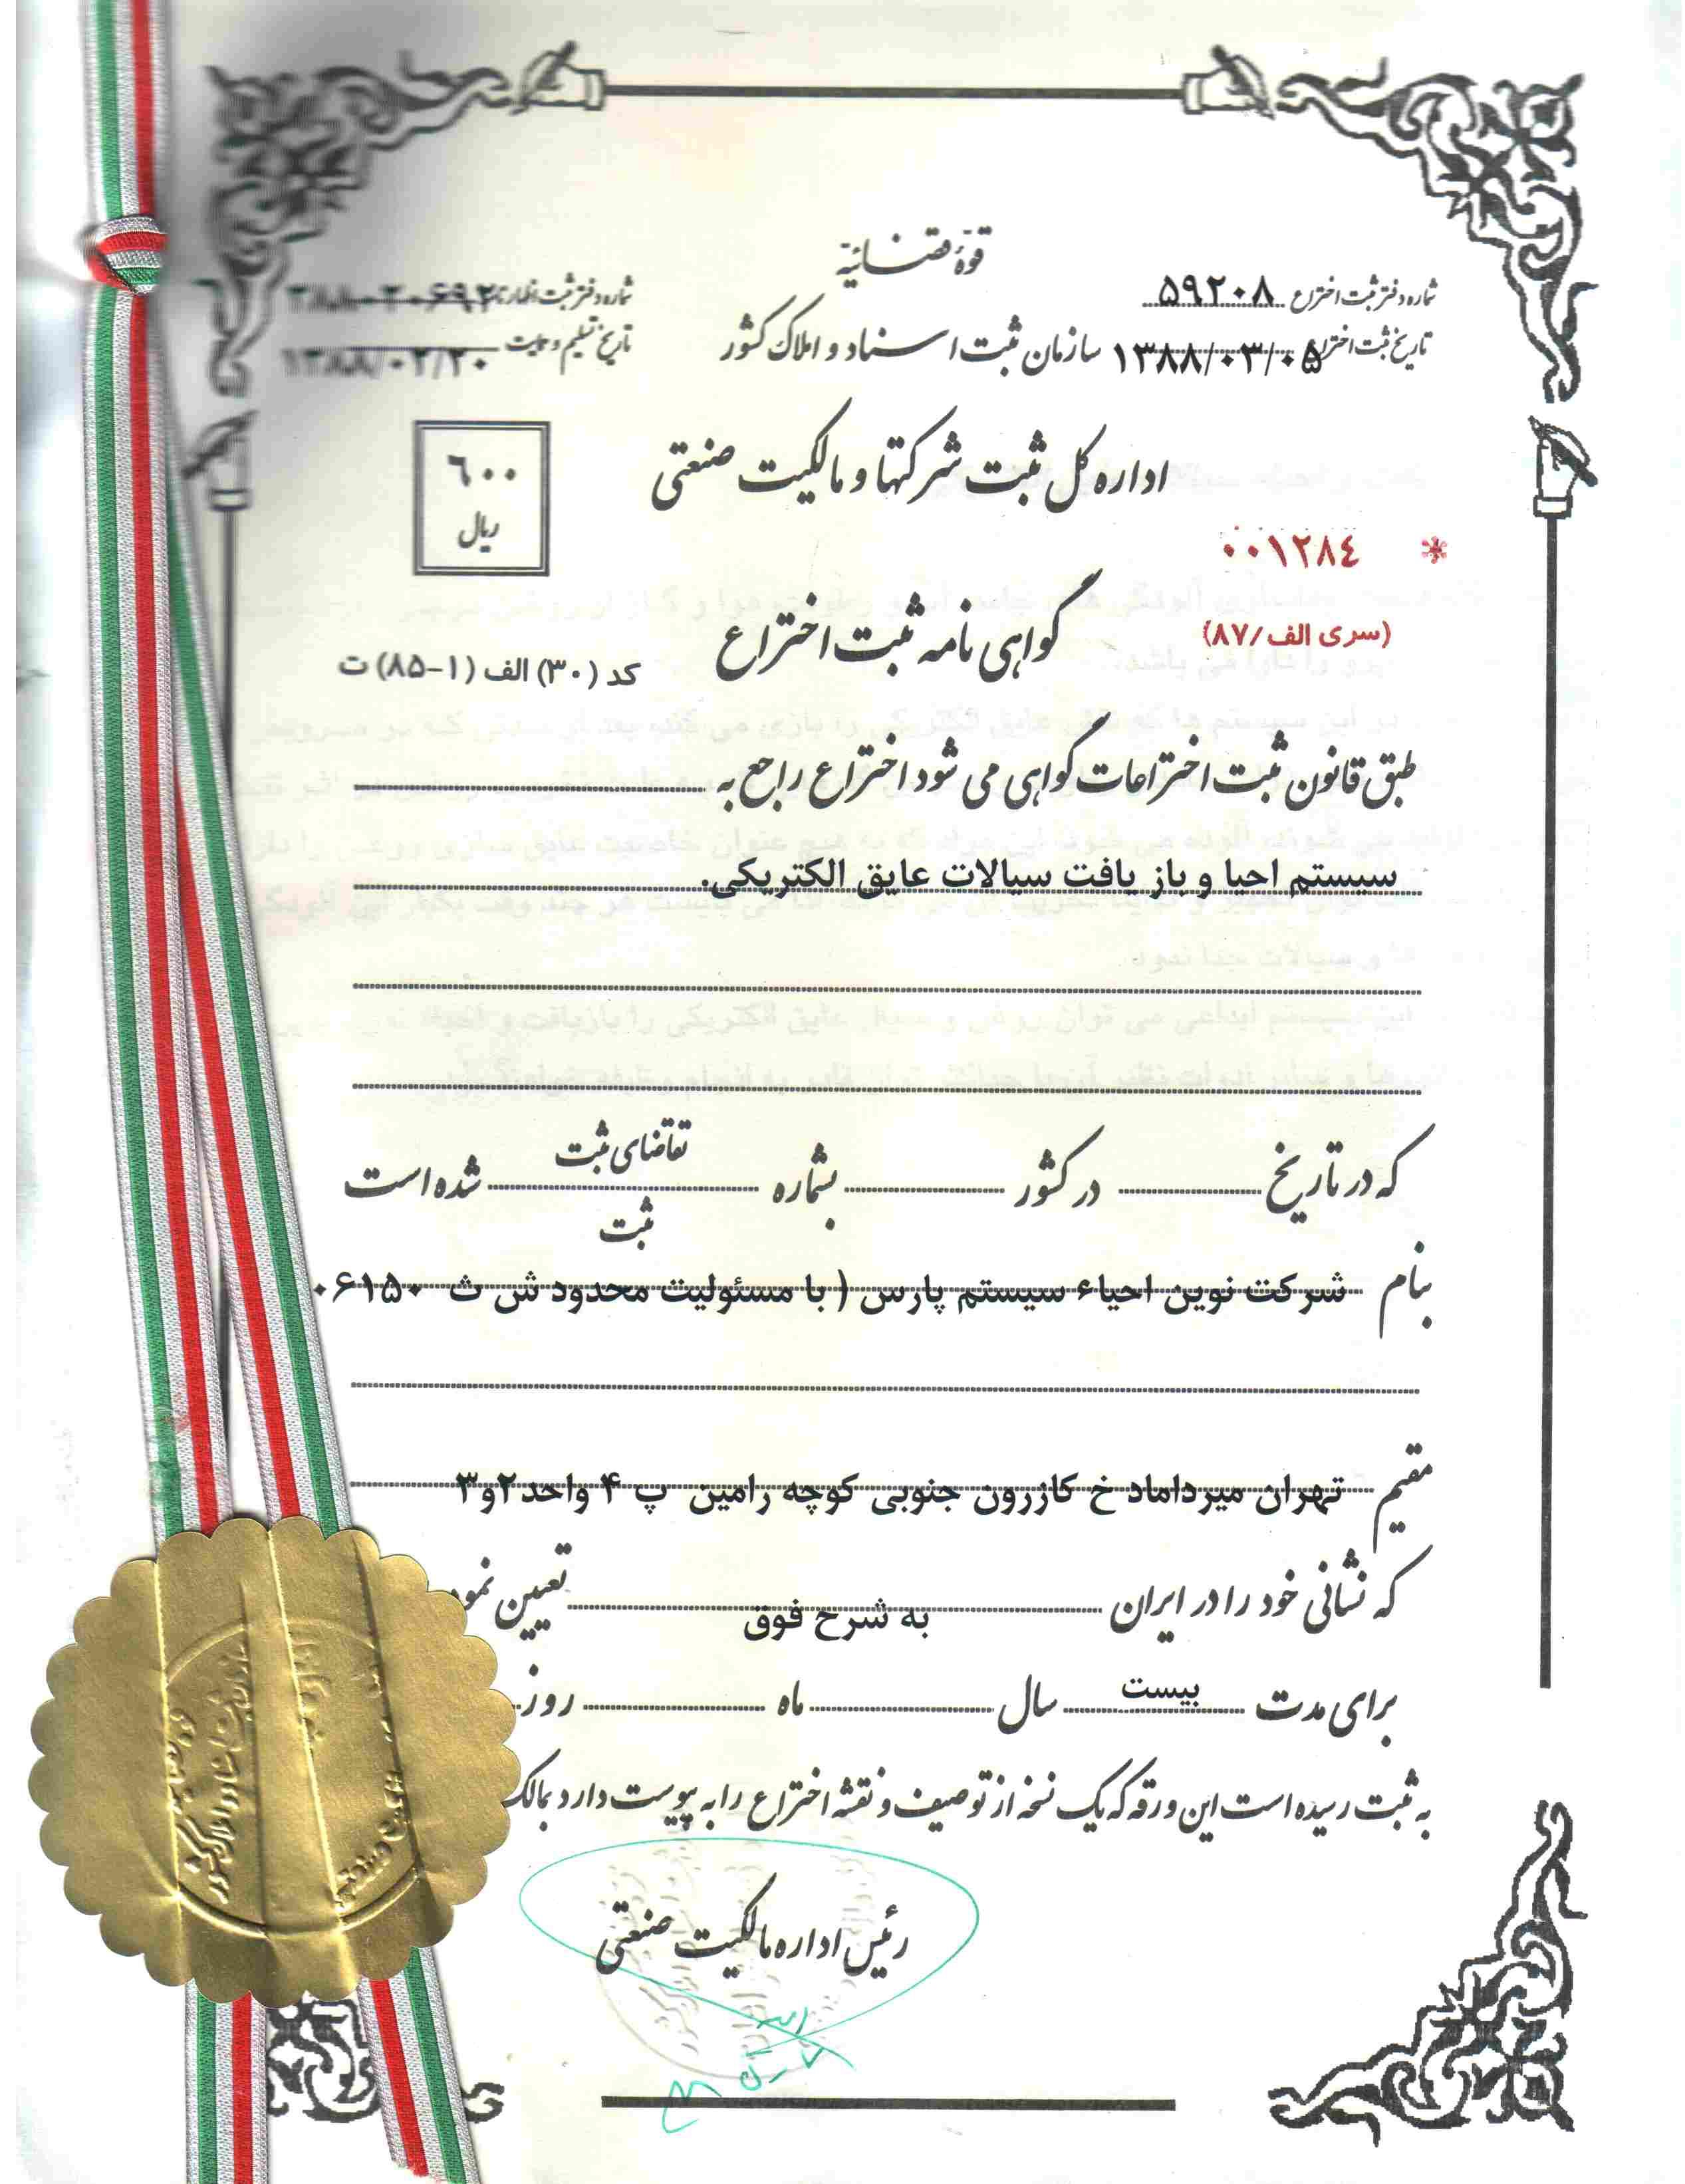 قوهٔ قضائیه
شماره دفتر ثبت اختراع ۵۹۲۰۸
شماره دفتر ثبت اظهارنامه ۳۸۸۰۲۰۶۹۲
سازمان ثبت اسناد و املاک کشور
تاریخ ثبت اختراع ۱۳۸۸/۰۳/۰۵
تاریخ تسلیم و حمایت ۱۳۸۸/۰۲/۲۰
اداره کل ثبت شرکتها و مالکیت صنعتی
۶۰۰
ریال
* ۰۰۱۲۸۴
(سری الف/۸۷)
گواهی نامه ثبت اختراع
کد (۳۰) الف (۱-۸۵) ت
طبق قانون ثبت اختراعات گواهی می شود اختراع راجع به
سیستم احیا و باز یافت سیالات عایق الکتریکی.
که در تاریخ در کشور بشماره تقاضای ثبت شده است
ثبت
بنام شرکت نوین احیاء سیستم پارس ( با مسئولیت محدود ش ث ۰۶۱۵۰
مقیم تهران میرداماد خ کازرون جنوبی کوچه رامین پ ۴ واحد ۲و۳
که نشانی خود را در ایران به شرح فوق تعیین نمو
برای مدت بیست سال ماه روز
به ثبت رسیده است این ورقه که یک نسخه از توصیف و نقشه اختراع را به پیوست دارد بمالک
رئیس اداره مالکیت صنعتی